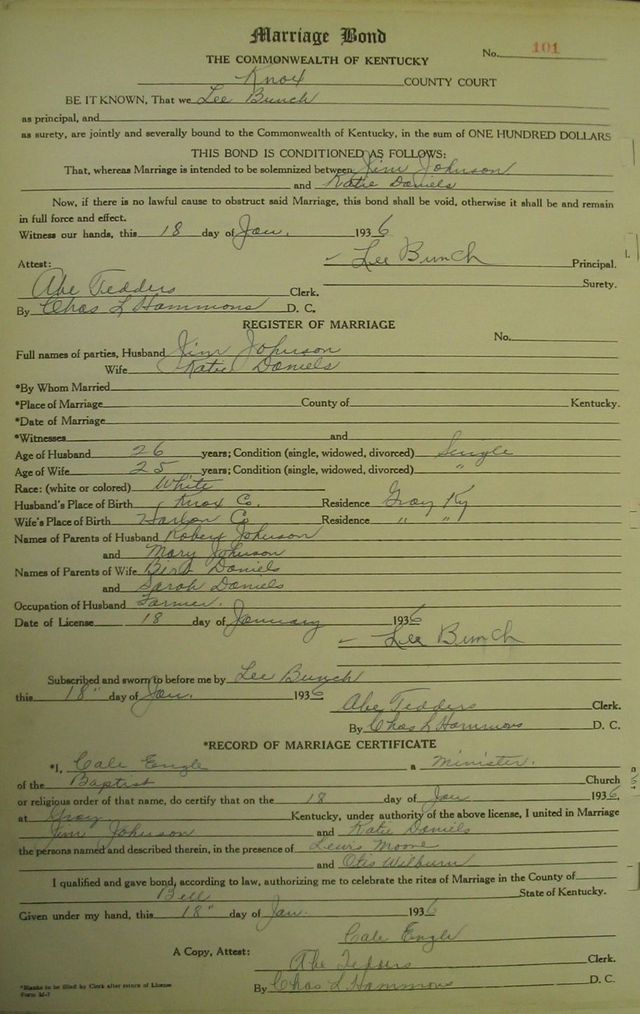 Marriage Bond
No. 101
THE COMMONWEALTH OF KENTUCKY
Knox COUNTY COURT
BE IT KNOWN, That we Lee Bunch
as principal, and
as surety, are jointly and severally bound to the Commonwealth of Kentucky, in the sum of ONE HUNDRED DOLLARS
THIS BOND IS CONDITIONED AS FOLLOWS:
That, whereas Marriage is intended to be solemnized between Jim Johnson
and Katie Daniels
Now, if there is no lawful cause to obstruct said Marriage, this bond shall be void, otherwise it shall be and remain
in full force and effect.
Witness our hands, this 18 day of Jan. 1936
Lee Bunch Principal.
Attest:
Surety.
Abe Tedders Clerk.
By Chas L Hammons D. C.
REGISTER OF MARRIAGE
No.
Full names of parties, Husband Jim Johnson
Wife Katie Daniels
*By Whom Married
*Place of Marriage County of Kentucky.
*Date of Marriage
*Witnesses and
Age of Husband 26 years; Condition (single, widowed, divorced) Single
Age of Wife 25 years; Condition (single, widowed, divorced) "
Race: (white or colored) White
Husband's Place of Birth Knox Co. Residence Gray Ky
Wife's Place of Birth Harlan Co Residence " "
Names of Parents of Husband Robert Johnson
and Mary Johnson
Names of Parents of Wife Daniels
and Sarah Daniels
Occupation of Husband Farmer.
Date of License 18 day of January 1936
Lee Bunch
Subscribed and sworn to before me by Lee Bunch
this 18" day of Jan. 1936
Abe Tedders Clerk.
By Chas L Hammons D. C.
*RECORD OF MARRIAGE CERTIFICATE
*I, Cale Engle a minister.
of the Baptist Church
or religious order of that name, do certify that on the 18 day of Jan 1936,
at Gray Kentucky, under authority of the above license, I united in Marriage
Jim Johnson and Katie Daniels
the persons named and described therein, in the presence of Lewis Moore
and Otis Wilburn
I qualified and gave bond, according to law, authorizing me to celebrate the rites of Marriage in the County of
Bell State of Kentucky.
Given under my hand, this 18" day of Jan. 1936
Cale Engle
A Copy, Attest:
Abe Tedders Clerk.
By Chas L Hammons D. C.
*Blanks to be filled by Clerk after return of License
Form M-7